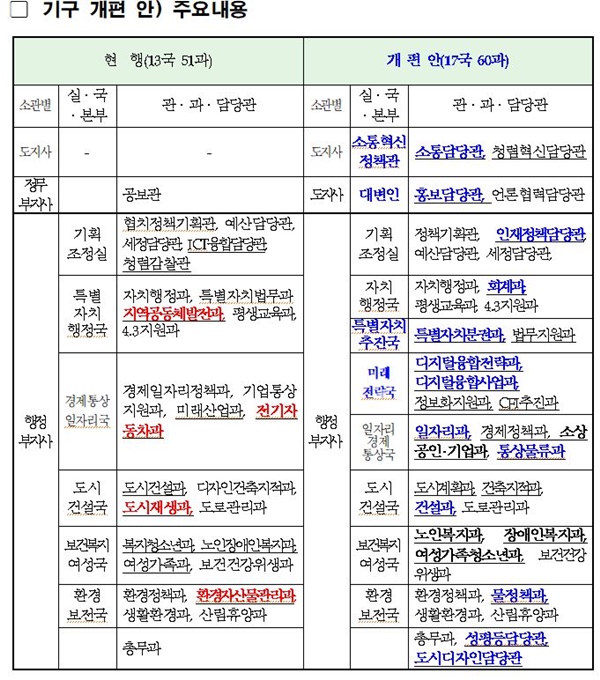 □ 기구 개편 안) 주요내용
현 행(13국 51과)
개 편 안(17국 60과)
소관별
실·국
·본부
관·과·담당관
소관별
실·국
·본부
관·과·담당관
도지사
-
-
도지사
소통혁신
정책관
소통담당관, 청렴혁신담당관
정무
부지사
공보관
도지사
대변인
홍보담당관, 언론협력담당관
행정
부지사
기획
조정실
협치정책기획관, 예산담당관,
세정담당관, ICT융합담당관,
청렴감찰관
행정
부지사
기획
조정실
정책기획관, 인재정책담당관,
예산담당관, 세정담당관,
특별
자치
행정국
자치행정과, 특별자치법무과
지역공동체발전과, 평생교육과,
4.3지원과
자치
행정국
자치행정과, 회계과,
평생교육과, 4.3지원과
특별자치
추진국
특별자치분권과, 법무지원과
경제통상
일자리국
경제일자리정책과, 기업통상
지원과, 미래산업과, 전기자
동차과
미래
전략국
디지털융합전략과,
디지털융합사업과,
정보화지원과, CFI추진과
일자리
경제
통상국
일자리과, 경제정책과, 소상
공인·기업과, 통상물류과
도시
건설국
도시건설과, 디자인건축지적과,
도시재생과, 도로관리과
도시
건설국
도시계획과, 건축지적과,
건설과, 도로관리과
보건복지
여성국
복지청소년과, 노인장애인복지과,
여성가족과, 보건건강위생과
보건복지
여성국
노인복지과, 장애인복지과,
여성가족청소년과, 보건건강
위생과
환경
보전국
환경정책과, 환경자산물관리과
생활환경과, 산림휴양과
환경
보전국
환경정책과, 물정책과,
생활환경과, 산림휴양과
총무과
총무과, 성평등담당관,
도시디자인담당관